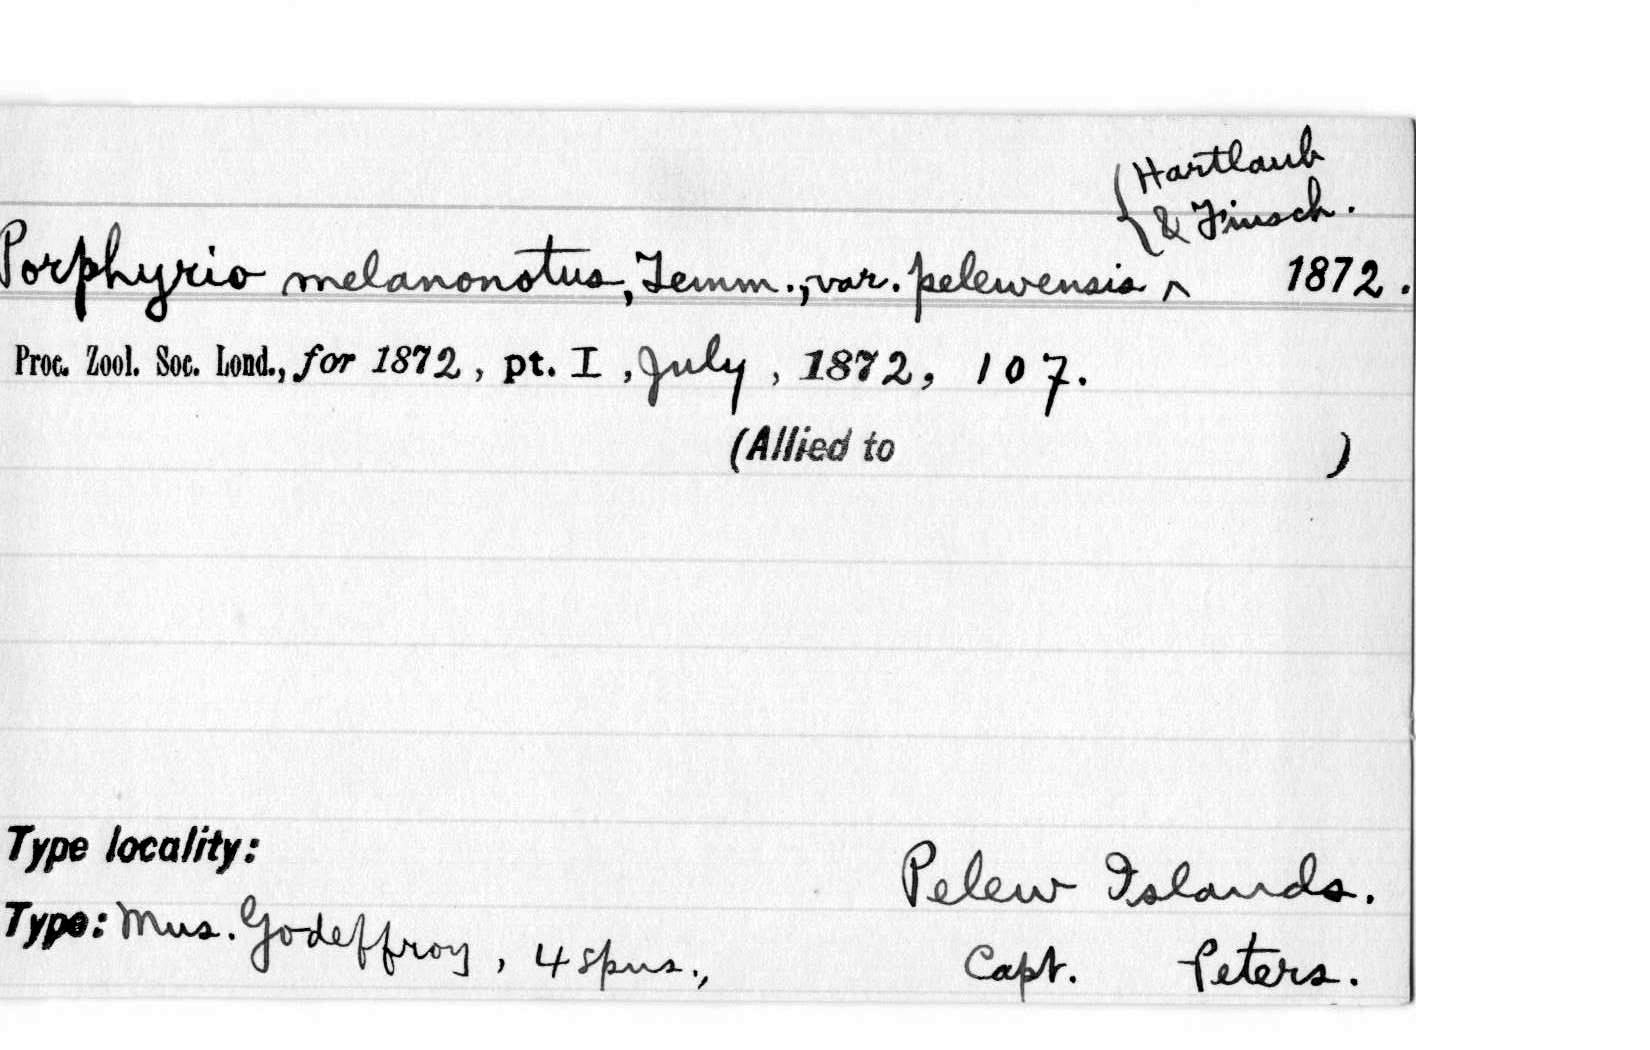 {Hartlaub
& Finsch.
Porphyrio melanonotus, Temm., var. pelewensis ^ 1872.
Proc. Zool. Soc. Lond., for 1872, pt. I, July, 1872, 107.
(Allied to )
Type locality: Pelew Islands.
Type: Mus. Godeffroy, 4 spms., Capt. Peters.